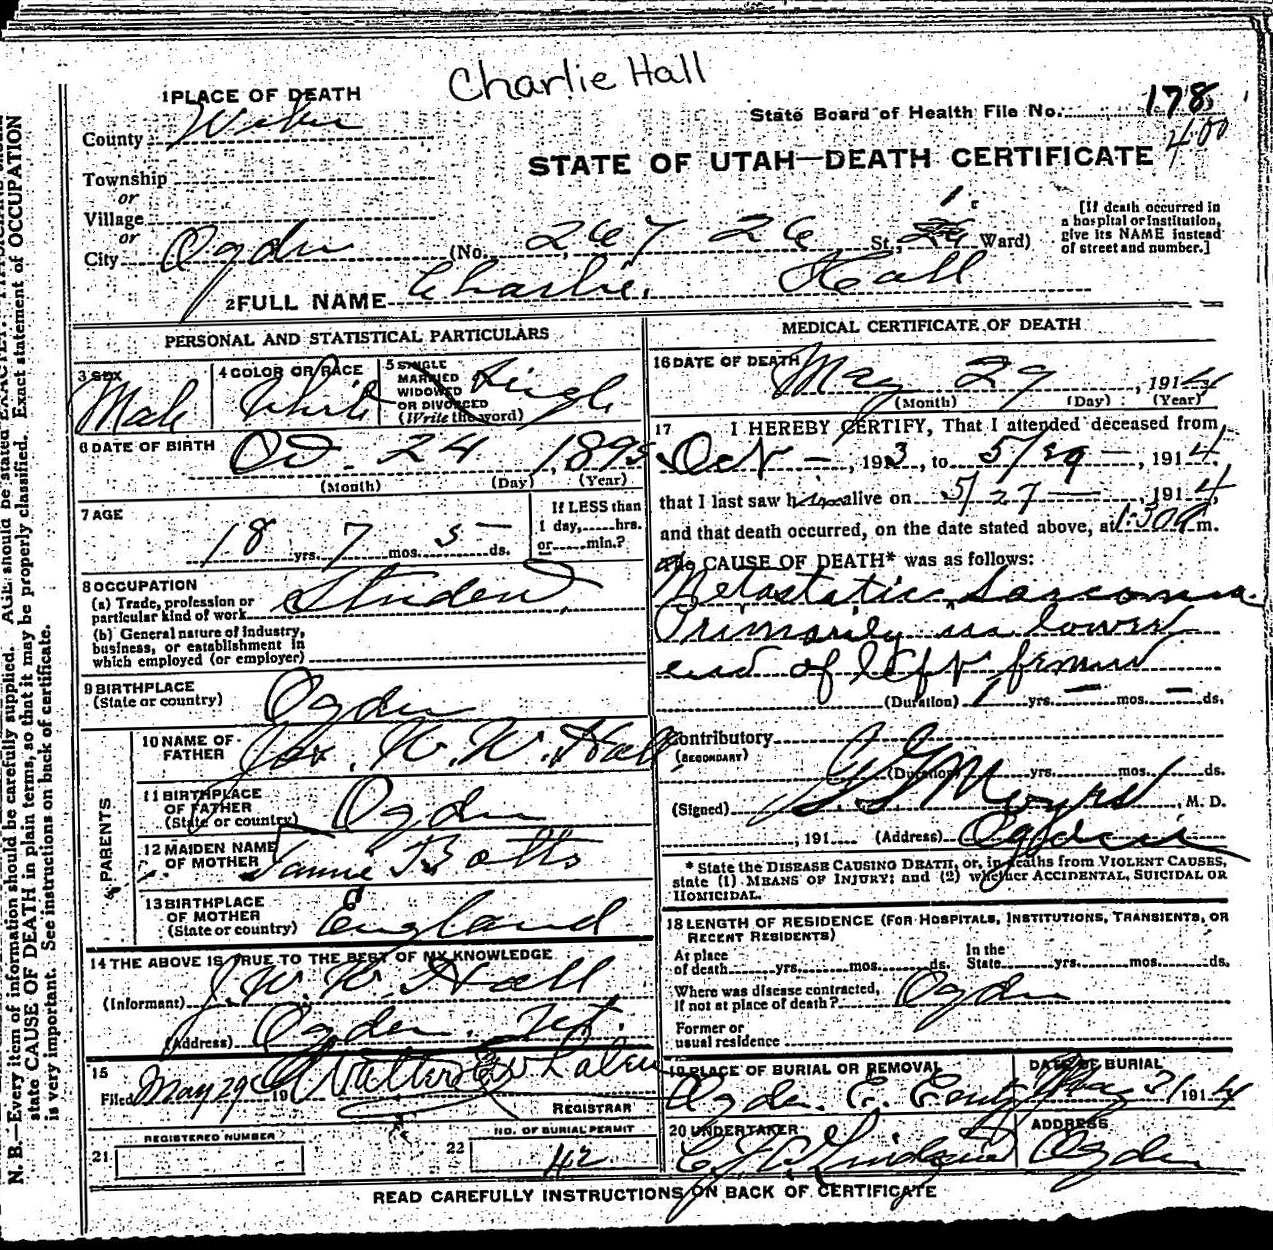 Charlie Hall
1 PLACE OF DEATH
County Weber
State Board of Health File No. 178
400
STATE OF UTAH—DEATH CERTIFICATE
Township
or
Village
or
City Ogden (No. 267 26 St, Ward)
[If death occurred in
a hospital or institution,
give its NAME instead
of street and number.]
2 FULL NAME Charlie Hall
PERSONAL AND STATISTICAL PARTICULARS
3 SEX
Male
4 COLOR OR RACE
White
5 SINGLE
MARRIED
WIDOWED
OR DIVORCED
(Write the word)
Single
6 DATE OF BIRTH
Oct. 24, 1895
(Month) (Day) (Year)
7 AGE
18 yrs. 7 mos. 5 ds.
If LESS than
1 day,......hrs.
or......min.?
8 OCCUPATION
(a) Trade, profession or
particular kind of work Student
(b) General nature of industry,
business, or establishment in
which employed (or employer)
9 BIRTHPLACE
(State or country) Ogden
PARENTS
10 NAME OF
FATHER Jos. W. W. Hall
11 BIRTHPLACE
OF FATHER
(State or country) Ogden
12 MAIDEN NAME
OF MOTHER Botts
13 BIRTHPLACE
OF MOTHER
(State or country) England
14 THE ABOVE IS TRUE TO THE BEST OF MY KNOWLEDGE
(Informant) J. W. W. Hall
(Address) Ogden. Ut.
15
Filed May 29 191 Walter
REGISTRAR
REGISTERED NUMBER
21
NO. OF BURIAL PERMIT
22 42
MEDICAL CERTIFICATE OF DEATH
16 DATE OF DEATH
May 29, 1914
(Month) (Day) (Year)
17 I HEREBY CERTIFY, That I attended deceased from
Oct —, 1913, to 5/29 —, 1914,
that I last saw him alive on 5/27 —, 1914,
and that death occurred, on the date stated above, at 1:30 a m.
The CAUSE OF DEATH* was as follows:
Metastatic Sarcoma.
Primarily in lower
end of left femur
(Duration) 1 yrs. — mos. — ds.
Contributory
(SECONDARY)
(Duration) yrs. mos. ds.
(Signed) , M. D.
, 191 (Address) Ogden
* State the DISEASE CAUSING DEATH, or, in deaths from VIOLENT CAUSES,
state (1) MEANS OF INJURY; and (2) whether ACCIDENTAL, SUICIDAL OR
HOMICIDAL.
18 LENGTH OF RESIDENCE (FOR HOSPITALS, INSTITUTIONS, TRANSIENTS, OR
RECENT RESIDENTS)
At place
of death yrs. mos. ds.
In the
State yrs. mos. ds.
Where was disease contracted,
if not at place of death? Ogden
Former or
usual residence
19 PLACE OF BURIAL OR REMOVAL
Ogden.
DATE OF BURIAL
May 31 1914
20 UNDERTAKER
ADDRESS
Ogden
READ CAREFULLY INSTRUCTIONS ON BACK OF CERTIFICATE
N. B.—Every item of information should be carefully supplied. AGE should be stated EXACTLY. PHYSICIANS should
state CAUSE OF DEATH in plain terms, so that it may be properly classified. Exact statement of OCCUPATION
is very important. See instructions on back of certificate.